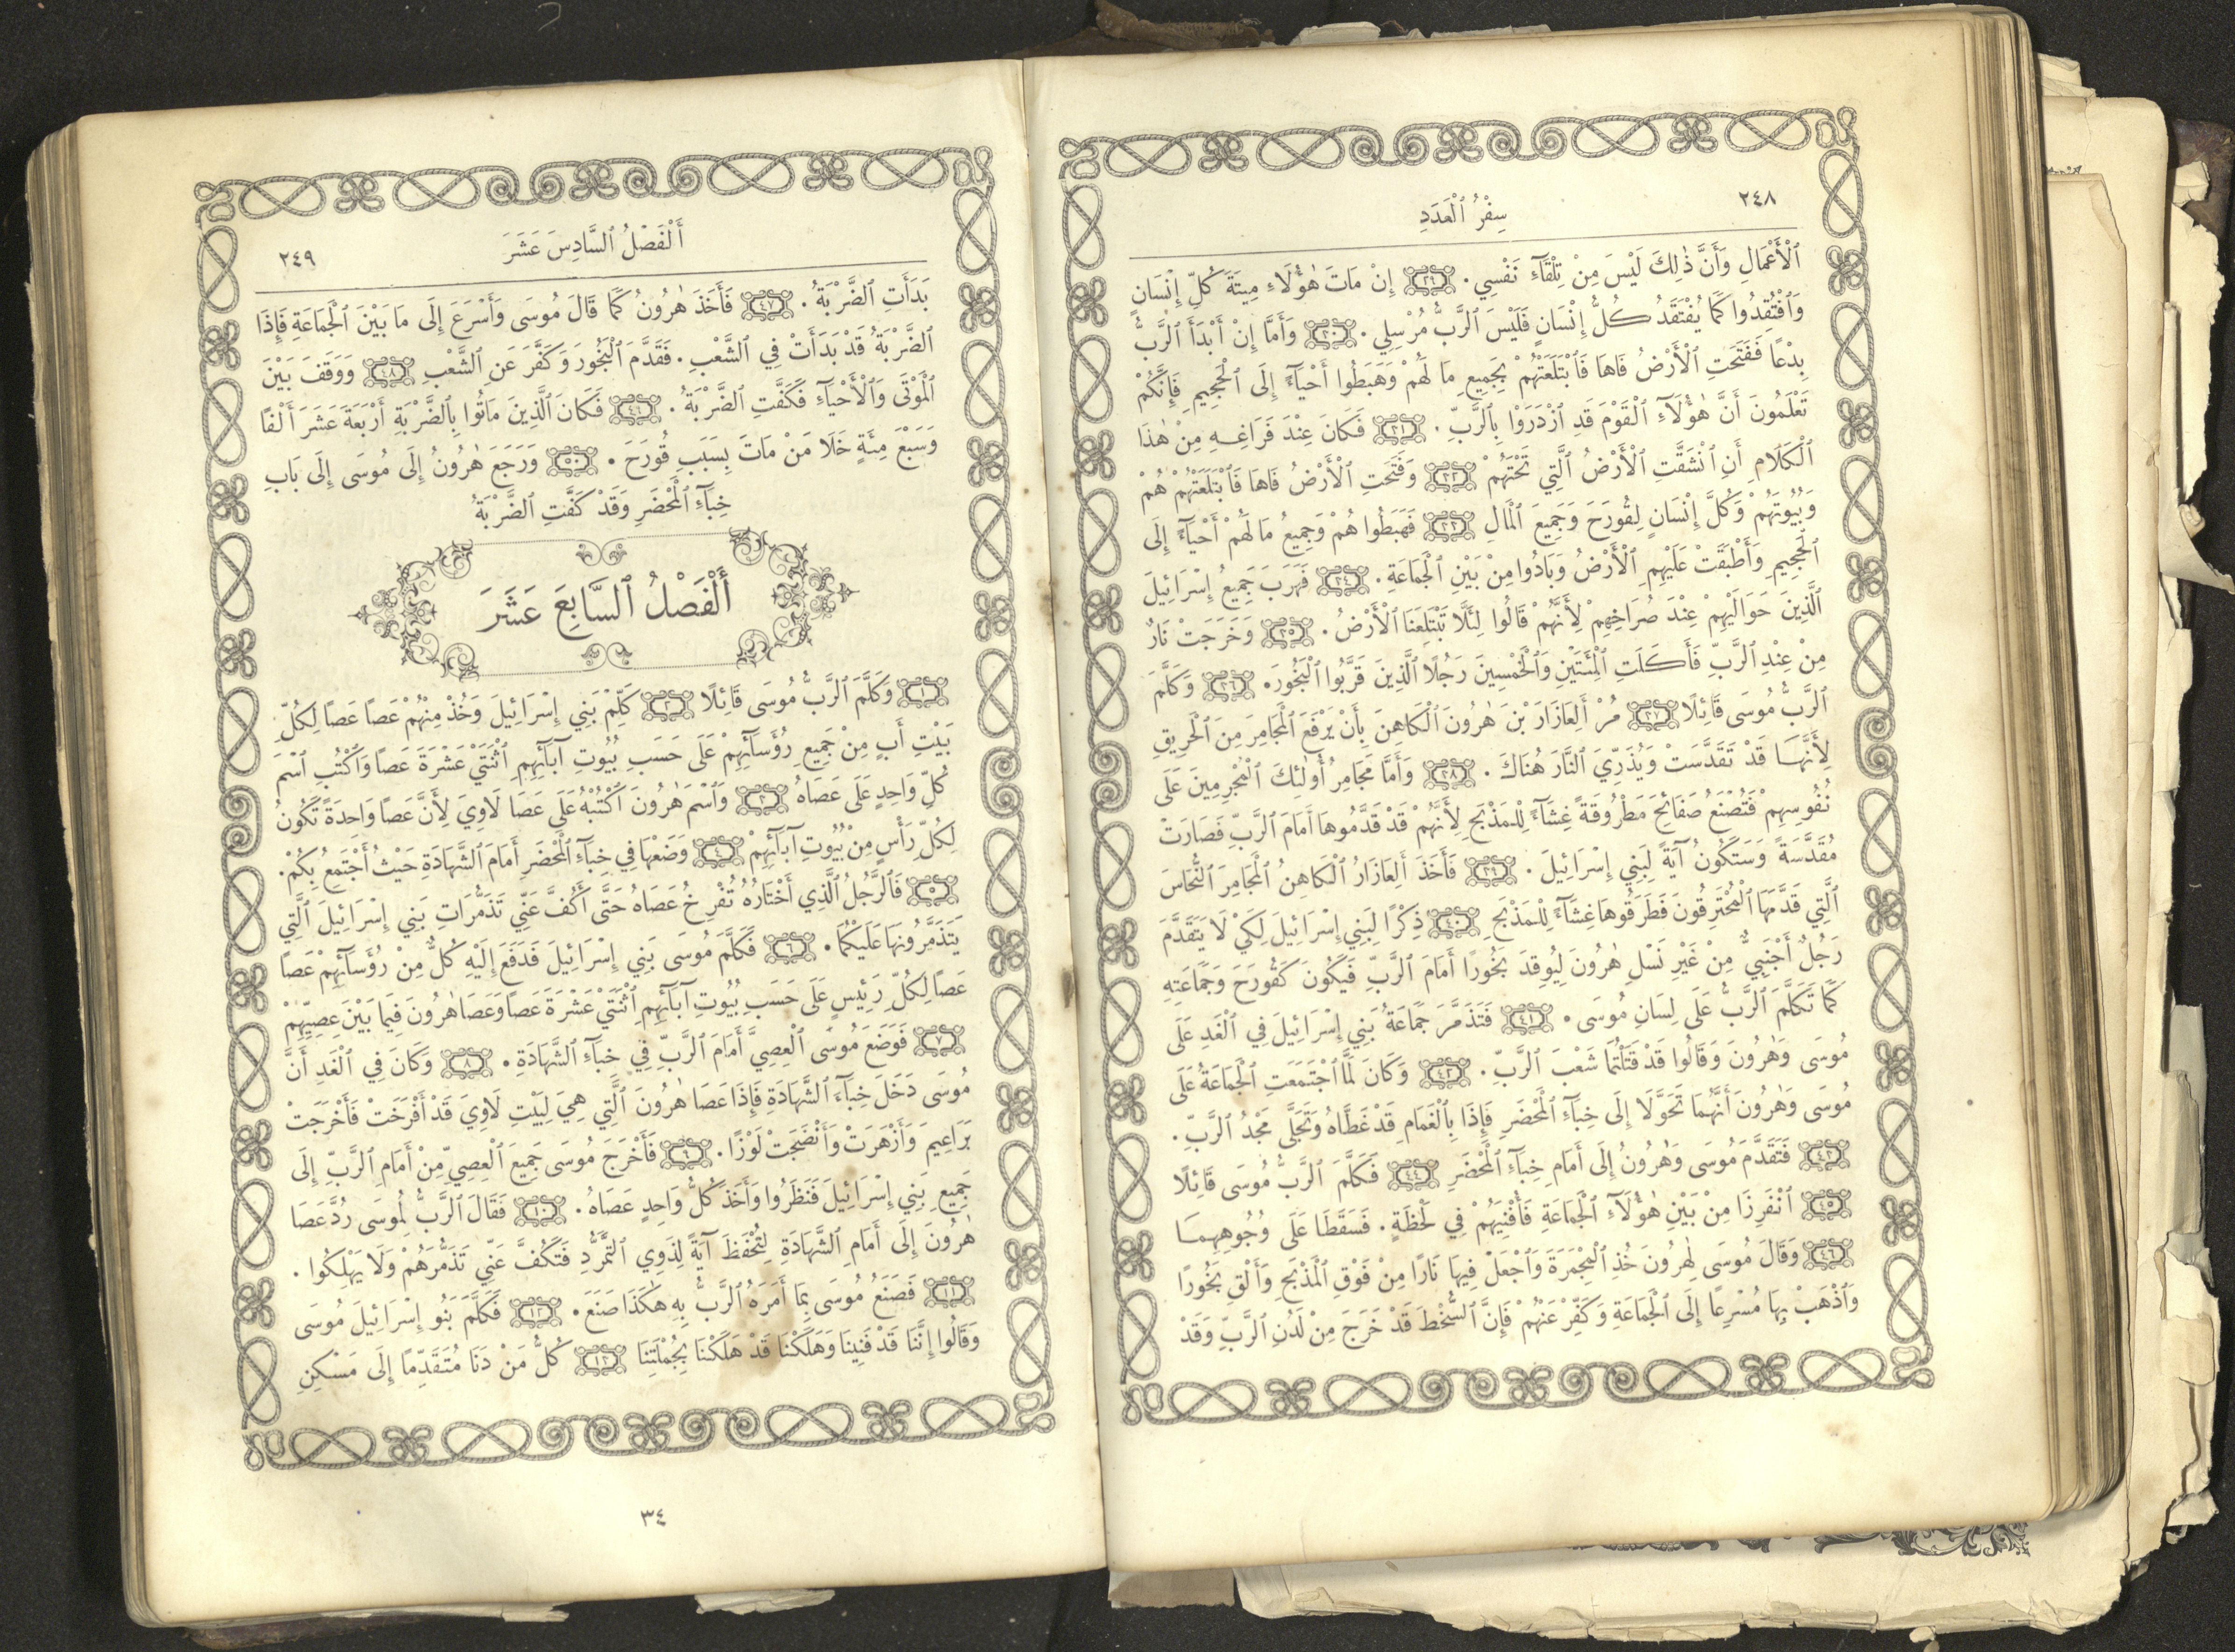 ٢٤٨
سِفْرُ ٱلْعَدَدِ
ٱلْأَعْمَالِ وَأَنَّ ذٰلِكَ لَيْسَ مِنْ تِلْقَآءِ نَفْسِي. ٢٩ إِنْ مَاتَ هٰؤُلَاءِ مِيتَةَ كُلِّ إِنْسَانٍ
وَٱفْتُقِدُوا كَمَا يُفْتَقَدُ كُلُّ إِنْسَانٍ فَلَيْسَ ٱلرَّبُّ مُرْسِلِي. ٣٠ وَأَمَّا إِنْ أَبْدَأَ ٱلرَّبُّ
بِدْعًا فَفَتَحَتِ ٱلْأَرْضُ فَاهَا فَٱبْتَلَعَتْهُمْ بِجَمِيعِ مَا لَهُمْ وَهَبَطُوا أَحْيَآءً إِلَى ٱلْجَحِيمِ فَإِنَّكُمْ
تَعْلَمُونَ أَنَّ هٰؤُلَآءِ ٱلْقَوْمَ قَدِ ٱزْدَرَوْا بِٱلرَّبِّ. ٣١ فَكَانَ عِنْدَ فَرَاغِهِ مِنْ هٰذَا
ٱلْكَلَامِ أَنِ ٱنْشَقَّتِ ٱلْأَرْضُ ٱلَّتِي تَحْتَهُمْ ٣٢ وَفَتَحَتِ ٱلْأَرْضُ فَاهَا فَٱبْتَلَعَتْهُمْ هُمْ
وَبُيُوتَهُمْ وَكُلَّ إِنْسَانٍ لِقُورَحَ وَجَمِيعَ ٱلْمَالِ ٣٣ فَهَبَطُوا هُمْ وَجَمِيعُ مَا لَهُمْ أَحْيَآءً إِلَى
ٱلْجَحِيمِ وَأَطْبَقَتْ عَلَيْهِمِ ٱلْأَرْضُ وَبَادُوا مِنْ بَيْنِ ٱلْجَمَاعَةِ. ٣٤ فَهَرَبَ جَمِيعُ إِسْرَائِيلَ
ٱلَّذِينَ حَوَالَيْهِمْ عِنْدَ صُرَاخِهِمْ لِأَنَّهُمْ قَالُوا لِئَلَّا تَبْتَلِعَنَا ٱلْأَرْضُ. ٣٥ وَخَرَجَتْ نَارٌ
مِنْ عِنْدِ ٱلرَّبِّ فَأَكَلَتِ ٱلْمِئَتَيْنِ وَٱلْخَمْسِينَ رَجُلًا ٱلَّذِينَ قَرَّبُوا ٱلْبَخُورَ. ٣٦ وَكَلَّمَ
ٱلرَّبُّ مُوسَى قَائِلًا ٣٧ مُرْ أَلِعَازَارَ بْنَ هٰرُونَ ٱلْكَاهِنَ بِأَنْ يَرْفَعَ ٱلْمَجَامِرَ مِنَ ٱلْحَرِيقِ
لِأَنَّهَا قَدْ تَقَدَّسَتْ وَيُذَرِّيَ ٱلنَّارَ هُنَاكَ. ٣٨ وَأَمَّا مَجَامِرُ أُولٰئِكَ ٱلْمُجْرِمِينَ عَلَى
نُفُوسِهِمْ فَتُصْنَعُ صَفَائِحَ مَطْرُوقَةً غِشَآءً لِلْمَذْبَحِ لِأَنَّهُمْ قَدْ قَدَّمُوهَا أَمَامَ ٱلرَّبِّ فَصَارَتْ
مُقَدَّسَةً وَسَتَكُونُ آيَةً لِبَنِي إِسْرَائِيلَ. ٣٩ فَأَخَذَ أَلِعَازَارُ ٱلْكَاهِنُ ٱلْمَجَامِرَ ٱلنُّحَاسَ
ٱلَّتِي قَدَّمَهَا ٱلْمُحْتَرِقُونَ فَطَرَقُوهَا غِشَآءً لِلْمَذْبَحِ ٤٠ ذِكْرًا لِبَنِي إِسْرَائِيلَ لِكَيْ لَا يَتَقَدَّمَ
رَجُلٌ أَجْنَبِيٌّ مِنْ غَيْرِ نَسْلِ هٰرُونَ لِيُوقِدَ بَخُورًا أَمَامَ ٱلرَّبِّ فَيَكُونَ كَقُورَحَ وَجَمَاعَتِهِ
كَمَا تَكَلَّمَ ٱلرَّبُّ عَلَى لِسَانِ مُوسَى. ٤١ فَتَذَمَّرَ جَمَاعَةُ بَنِي إِسْرَائِيلَ فِي ٱلْغَدِ عَلَى
مُوسَى وَهٰرُونَ وَقَالُوا قَدْ قَتَلْتُمَا شَعْبَ ٱلرَّبِّ. ٤٢ وَكَانَ لَمَّا ٱجْتَمَعَتِ ٱلْجَمَاعَةُ عَلَى
مُوسَى وَهٰرُونَ أَنَّهُمَا تَحَوَّلَا إِلَى خِبَآءِ ٱلْمَحْضَرِ فَإِذَا بِٱلْغَمَامِ قَدْ غَطَّاهُ وَتَجَلَّى مَجْدُ ٱلرَّبِّ.
٤٣ فَتَقَدَّمَ مُوسَى وَهٰرُونُ إِلَى أَمَامِ خِبَآءِ ٱلْمَحْضَرِ ٤٤ فَكَلَّمَ ٱلرَّبُّ مُوسَى قَائِلًا
٤٥ ٱنْفَرِزَا مِنْ بَيْنِ هٰؤُلَآءِ ٱلْجَمَاعَةِ فَأُفْنِيَهُمْ فِي لَحْظَةٍ. فَسَقَطَا عَلَى وُجُوهِهِمَا
٤٦ وَقَالَ مُوسَى لِهٰرُونَ خُذِ ٱلْمِجْمَرَةَ وَٱجْعَلْ فِيهَا نَارًا مِنْ فَوْقِ ٱلْمَذْبَحِ وَأَلْقِ بَخُورًا
وَٱذْهَبْ بِهَا مُسْرِعًا إِلَى ٱلْجَمَاعَةِ وَكَفِّرْ عَنْهُمْ فَإِنَّ ٱلسُّخْطَ قَدْ خَرَجَ مِنْ لَدُنِ ٱلرَّبِّ وَقَدْ
أَلْفَصْلُ ٱلسَّادِسَ عَشَرَ
٢٤٩
بَدَأَتِ ٱلضَّرْبَةُ. ٤٧ فَأَخَذَ هٰرُونُ كَمَا قَالَ مُوسَى وَأَسْرَعَ إِلَى مَا بَيْنَ ٱلْجَمَاعَةِ فَإِذَا
ٱلضَّرْبَةُ قَدْ بَدَأَتْ فِي ٱلشَّعْبِ. فَقَدَّمَ ٱلْبَخُورَ وَكَفَّرَ عَنِ ٱلشَّعْبِ ٤٨ وَوَقَفَ بَيْنَ
ٱلْمَوْتَى وَٱلْأَحْيَآءِ فَكَفَّتِ ٱلضَّرْبَةُ. ٤٩ فَكَانَ ٱلَّذِينَ مَاتُوا بِٱلضَّرْبَةِ أَرْبَعَةَ عَشَرَ أَلْفًا
وَسَبْعَ مِئَةٍ خَلَا مَنْ مَاتَ بِسَبَبِ قُورَحَ. ٥٠ وَرَجَعَ هٰرُونُ إِلَى مُوسَى إِلَى بَابِ
خِبَآءِ ٱلْمَحْضَرِ وَقَدْ كَفَّتِ ٱلضَّرْبَةُ
أَلْفَصْلُ ٱلسَّابِعَ عَشَرَ
١ وَكَلَّمَ ٱلرَّبُّ مُوسَى قَائِلًا ٢ كَلِّمْ بَنِي إِسْرَائِيلَ وَخُذْ مِنْهُمْ عَصًا عَصًا لِكُلِّ
بَيْتِ أَبٍ مِنْ جَمِيعِ رُؤَسَآئِهِمْ عَلَى حَسَبِ بُيُوتِ آبَآئِهِمِ ٱثْنَتَيْ عَشْرَةَ عَصًا وَٱكْتُبِ ٱسْمَ
كُلِّ وَاحِدٍ عَلَى عَصَاهُ ٣ وَٱسْمَ هٰرُونَ ٱكْتُبْهُ عَلَى عَصَا لَاوِيَ لِأَنَّ عَصًا وَاحِدَةً تَكُونُ
لِكُلِّ رَأْسٍ مِنْ بُيُوتِ آبَآئِهِمْ ٤ وَضَعْهَا فِي خِبَآءِ ٱلْمَحْضَرِ أَمَامَ ٱلشَّهَادَةِ حَيْثُ أَجْتَمِعُ بِكُمْ.
٥ فَٱلرَّجُلُ ٱلَّذِي أَخْتَارُهُ تُفْرِخُ عَصَاهُ حَتَّى أَكُفَّ عَنِّي تَذَمُّرَاتِ بَنِي إِسْرَائِيلَ ٱلَّتِي
يَتَذَمَّرُونَهَا عَلَيْكُمَا. ٦ فَكَلَّمَ مُوسَى بَنِي إِسْرَائِيلَ فَدَفَعَ إِلَيْهِ كُلٌّ مِنْ رُؤَسَآئِهِمْ عَصًا
عَصًا لِكُلِّ رَئِيسٍ عَلَى حَسَبِ بُيُوتِ آبَآئِهِمِ ٱثْنَتَيْ عَشْرَةَ عَصًا وَعَصَا هٰرُونَ فِيمَا بَيْنَ عِصِيِّهِمْ
٧ فَوَضَعَ مُوسَى ٱلْعِصِيَّ أَمَامَ ٱلرَّبِّ فِي خِبَآءِ ٱلشَّهَادَةِ. ٨ وَكَانَ فِي ٱلْغَدِ أَنَّ
مُوسَى دَخَلَ خِبَآءَ ٱلشَّهَادَةِ فَإِذَا عَصَا هٰرُونَ ٱلَّتِي هِيَ لِبَيْتِ لَاوِيَ قَدْ أَفْرَخَتْ فَأَخْرَجَتْ
بَرَاعِيمَ وَأَزْهَرَتْ وَأَنْضَجَتْ لَوْزًا. ٩ فَأَخْرَجَ مُوسَى جَمِيعَ ٱلْعِصِيِّ مِنْ أَمَامِ ٱلرَّبِّ إِلَى
جَمِيعِ بَنِي إِسْرَائِيلَ فَنَظَرُوا وَأَخَذَ كُلُّ وَاحِدٍ عَصَاهُ. ١٠ فَقَالَ ٱلرَّبُّ لِمُوسَى رُدَّ عَصَا
هٰرُونَ إِلَى أَمَامِ ٱلشَّهَادَةِ لِتُحْفَظَ آيَةً لِذَوِي ٱلتَّمَرُّدِ فَتَكُفَّ عَنِّي تَذَمُّرَهُمْ وَلَا يَهْلِكُوا.
١١ فَصَنَعُ مُوسَى بِمَا أَمَرَهُ ٱلرَّبُّ بِهِ هٰكَذَا صَنَعَ. ١٢ فَكَلَّمَ بَنُو إِسْرَائِيلَ مُوسَى
وَقَالُوا إِنَّنَا قَدْ فَنِينَا وَهَلَكْنَا قَدْ هَلَكْنَا بِجُمْلَتِنَا ١٣ كُلُّ مَنْ دَنَا مُتَقَدِّمًا إِلَى مَسْكِنِ
٣٤